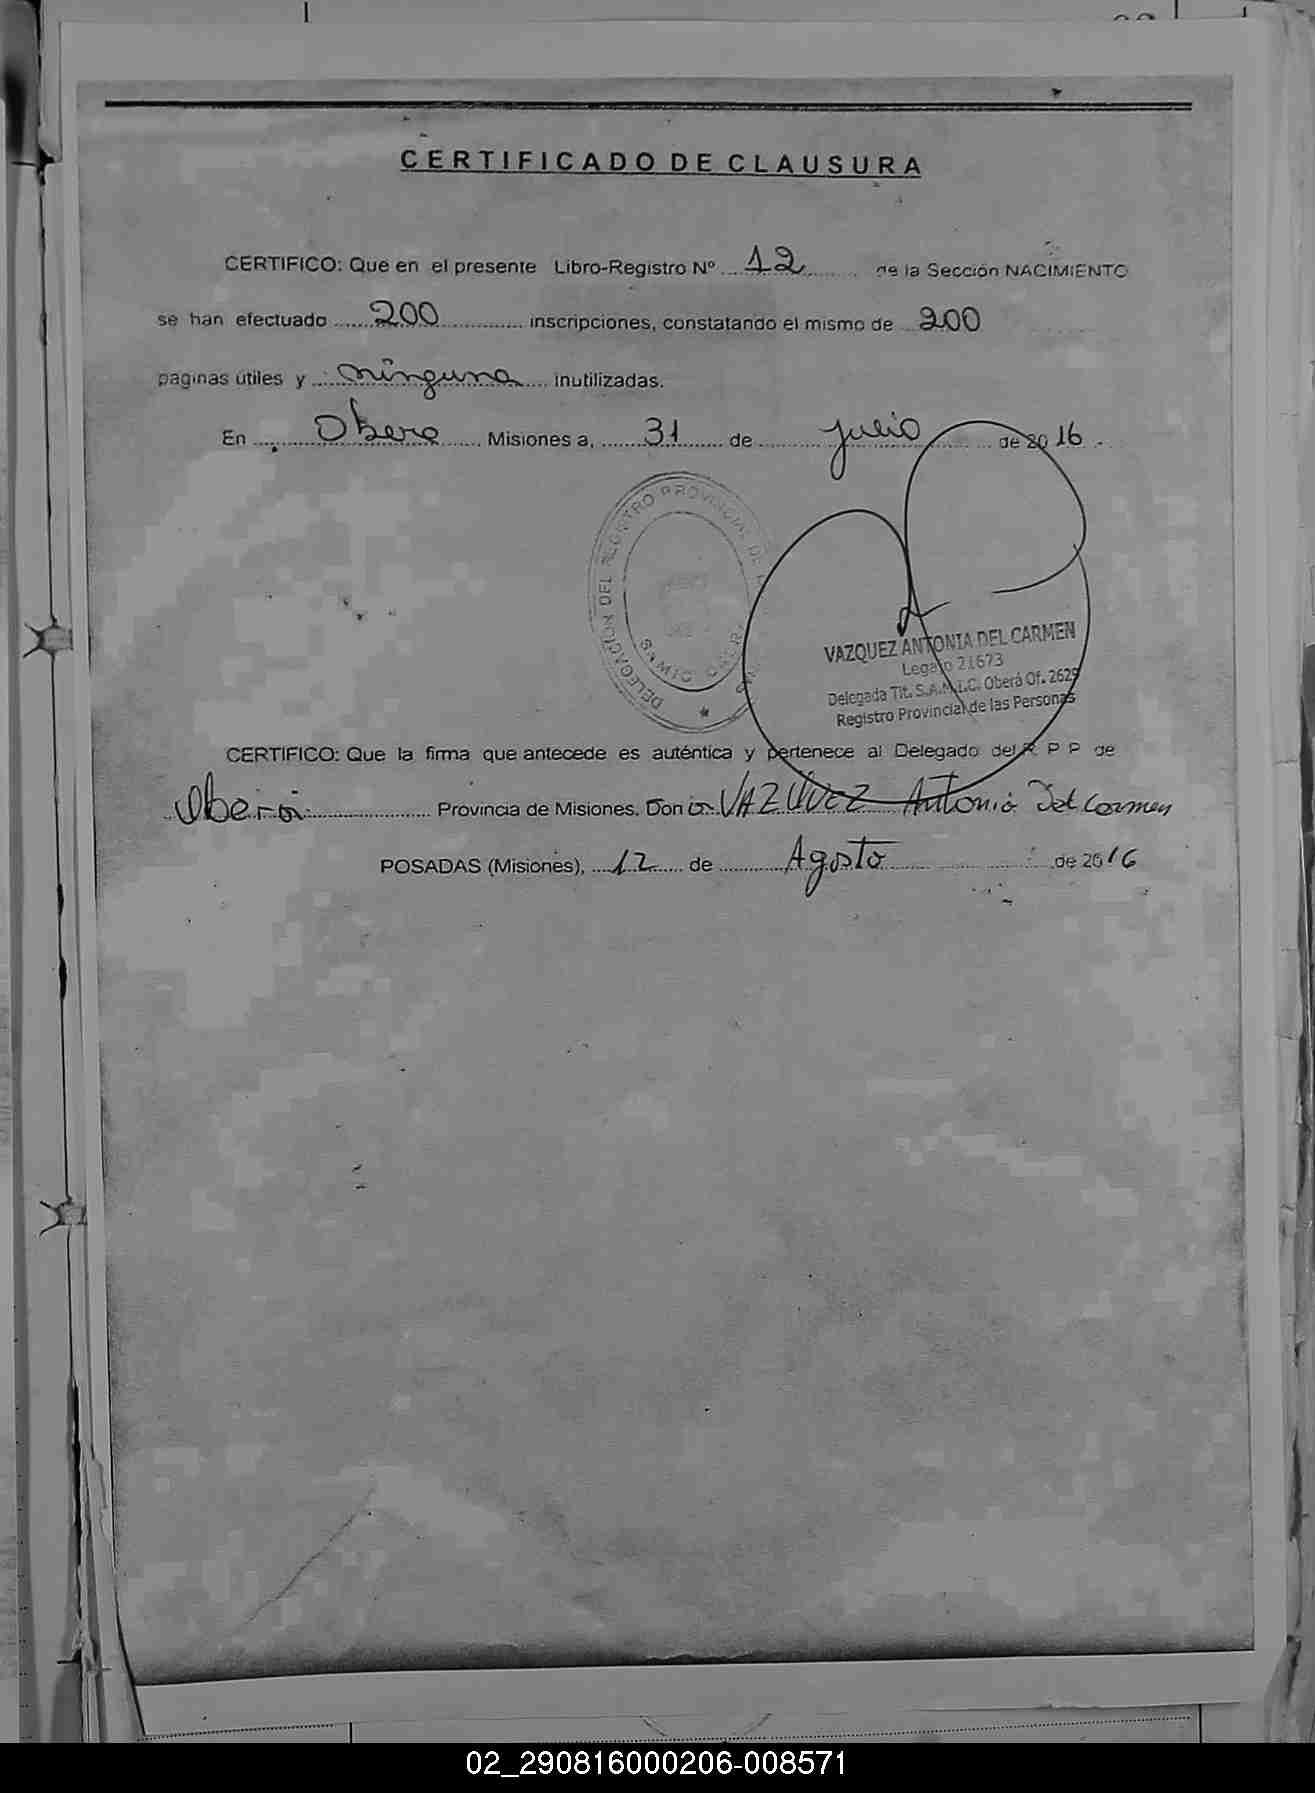 CERTIFICADO DE CLAUSURA
CERTIFICO: Que en el presente Libro-Registro Nº 12 de la Sección NACIMIENTO
se han efectuado 200 inscripciones, constatando el mismo de 200
paginas útiles y ninguna inutilizadas.
En Obera Misiones a, 31 de julio de 2016.
DELEGACIÓN DEL REGISTRO PROVINCIAL DE
VAZQUEZ ANTONIA DEL CARMEN
Legajo 21673
Delegada Tit. S.A.M.I.C. Oberá Of. 2629
Registro Provincial de las Personas
CERTIFICO: Que la firma que antecede es auténtica y pertenece al Delegado del R P P de
Oberá Provincia de Misiones. Don VAZQUEZ Antonia Del Carmen
POSADAS (Misiones), 12 de Agosto de 2016
02_290816000206-008571